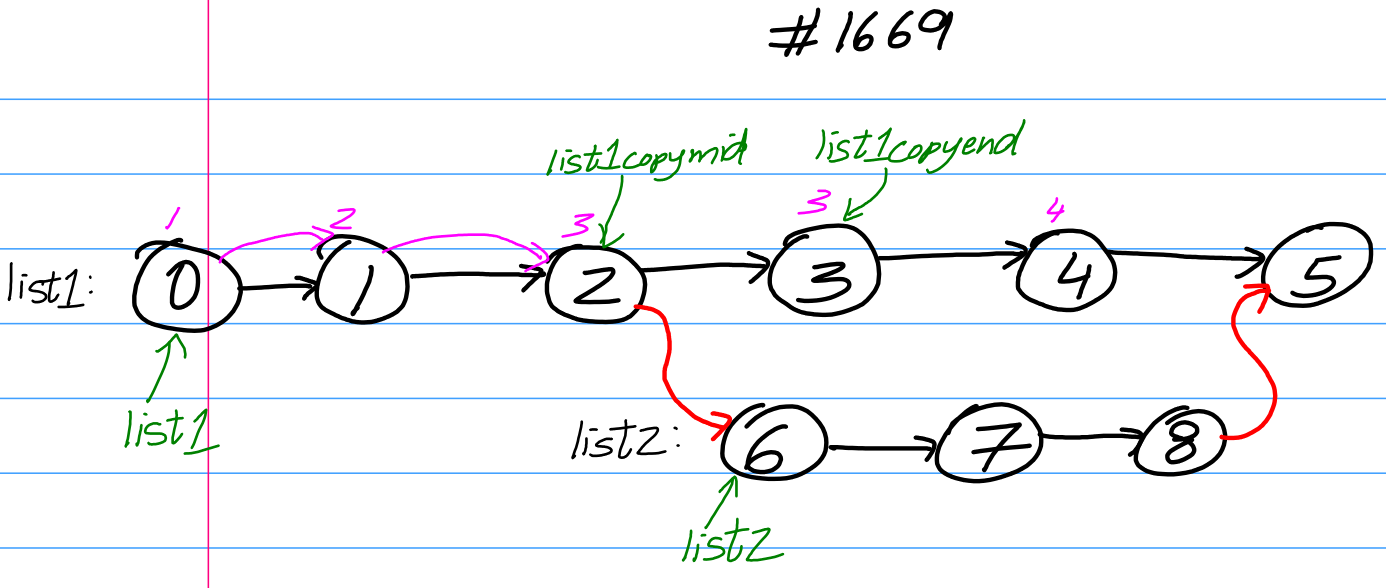 #1669
list1copymid
list1copyend
1 2 3 3 4
list1: 0 1 2 3 4 5
list1
list2: 6 7 8
list2